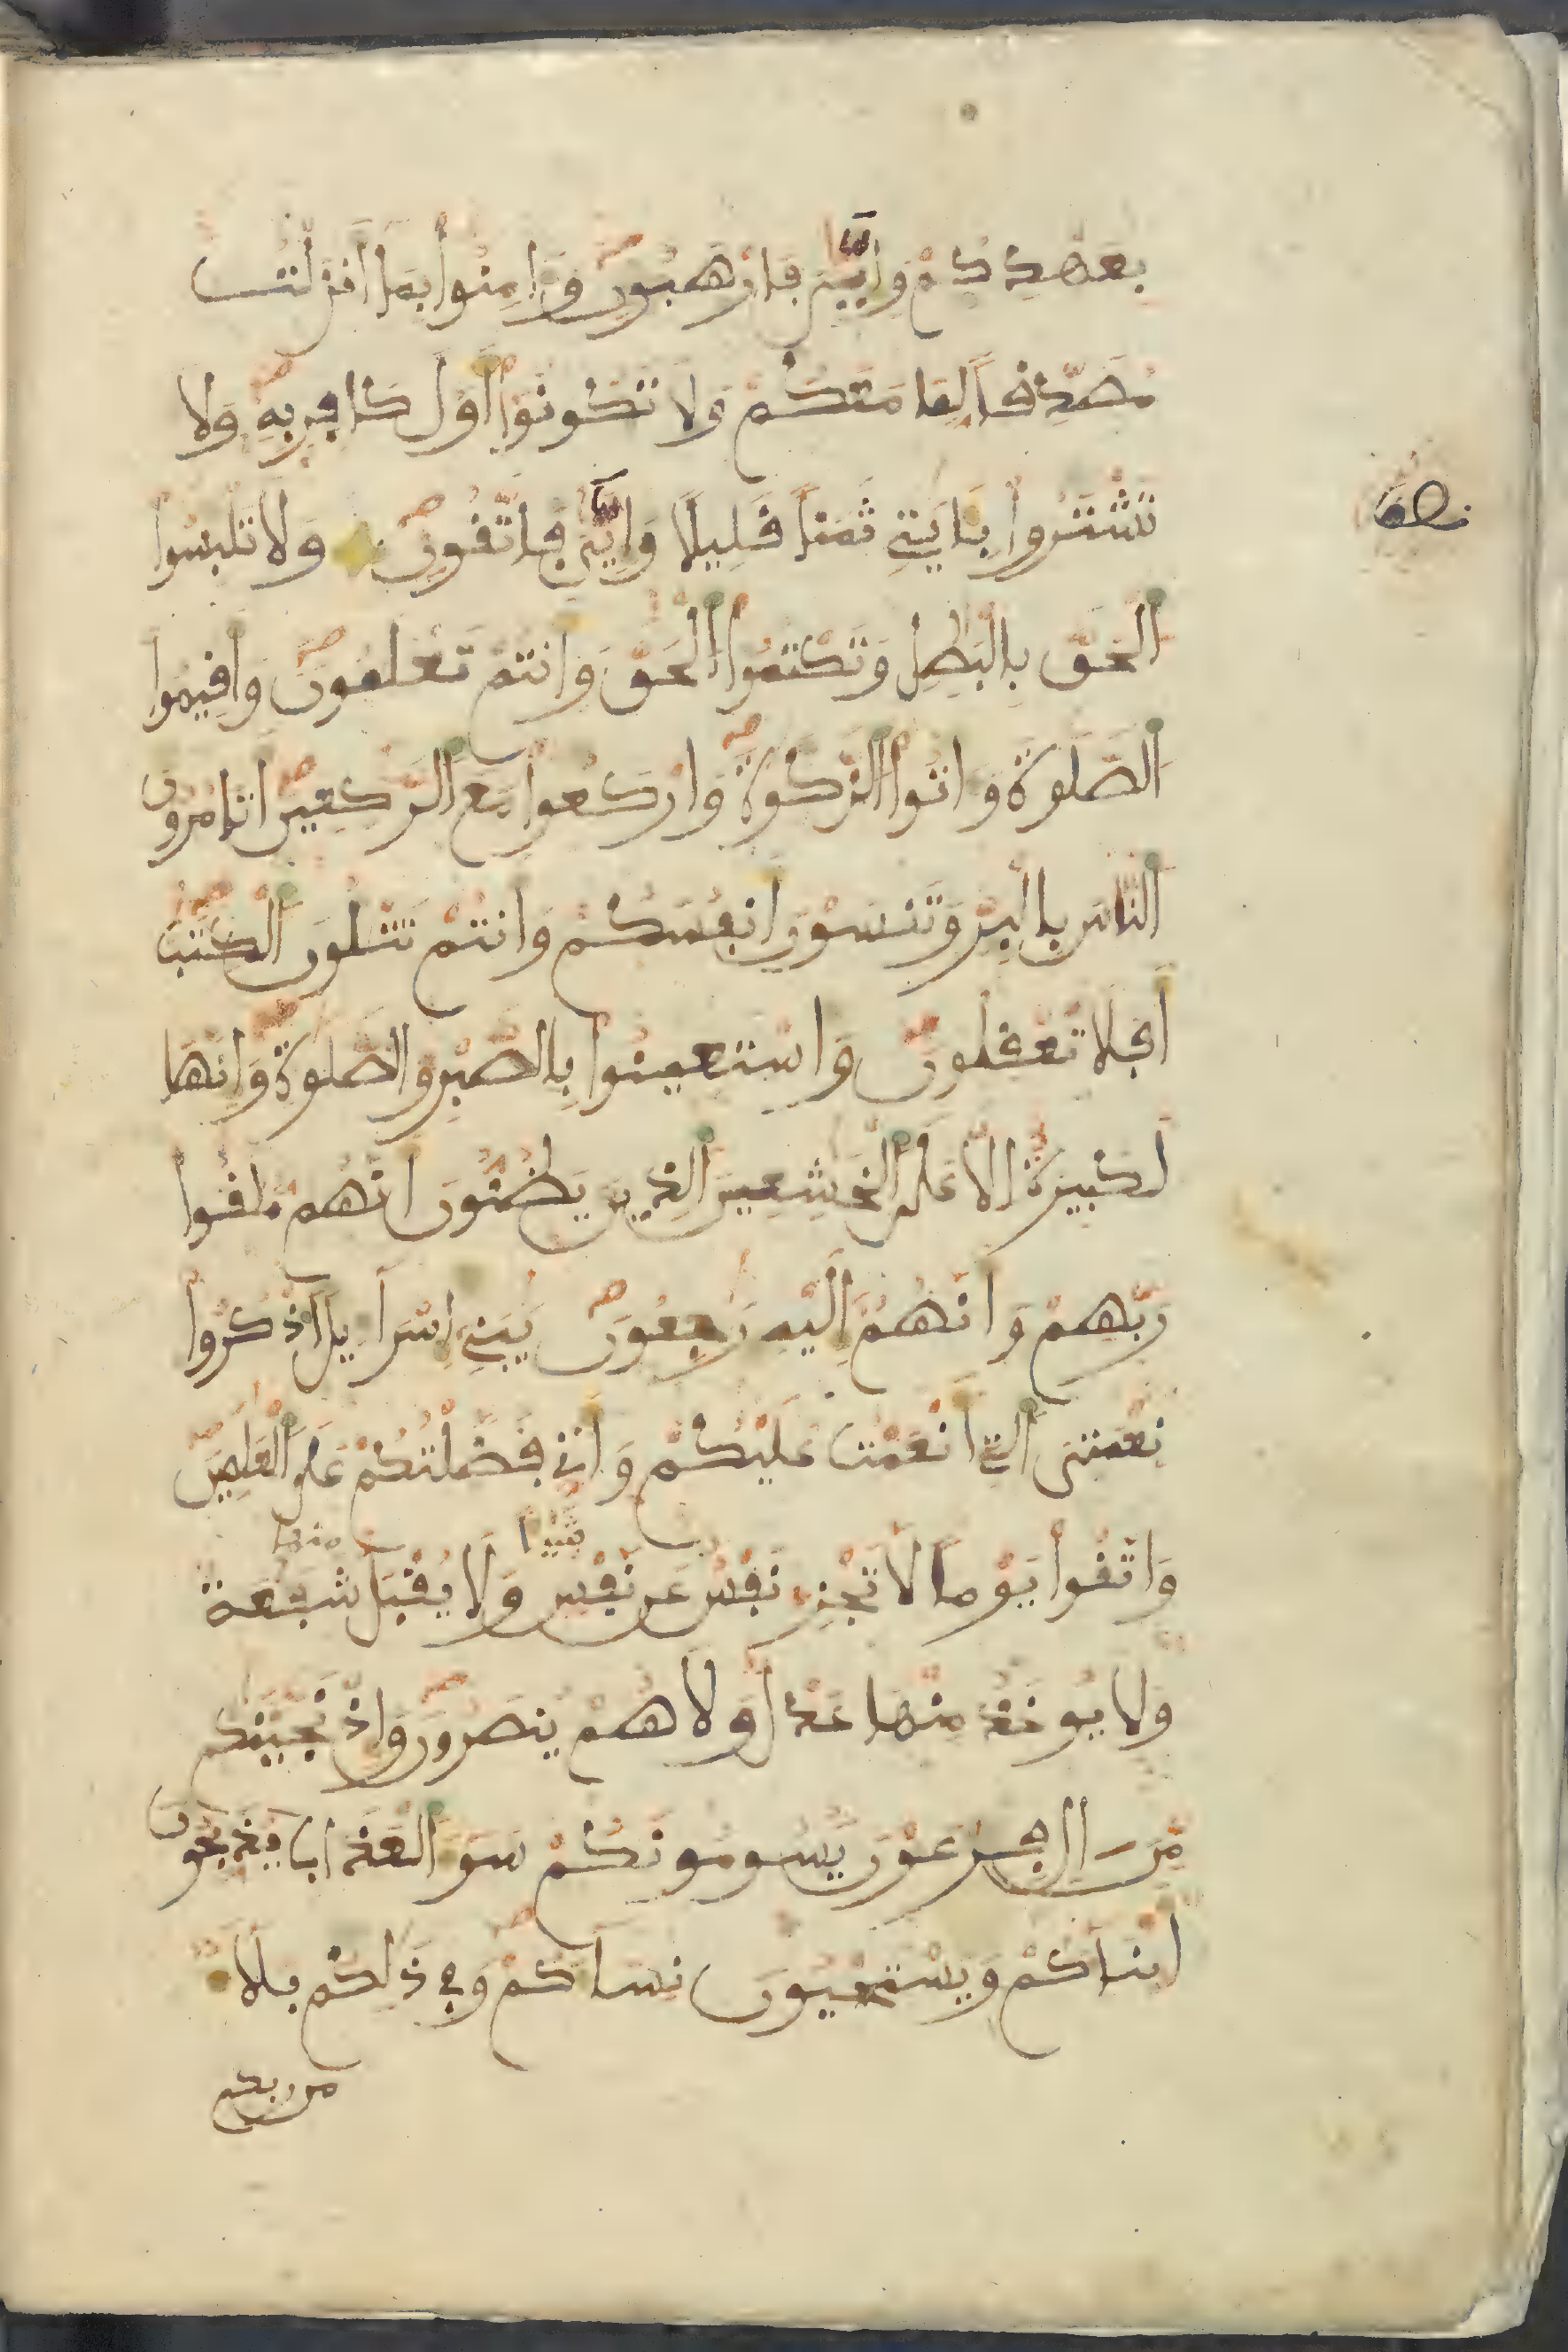 بِعَهْدِكُمْ وَإِيَّيَ فَارْهَبُونِ وَءَامِنُوا بِمَا أَنزَلْتُ
مُصَدِّقاً لِمَا مَعَكُمْ وَلَا تَكُونُوا أَوَّلَ كَافِرٍ بِهِ وَلَا
تَشْتَرُوا بِـَٔايَتِي ثَمَناً قَلِيلًا وَإِيَّيَ فَاتَّقُونِ وَلَا تَلْبِسُوا
نصف
الْحَقَّ بِالْبَطِلِ وَتَكْتُمُوا الْحَقَّ وَأَنتُمْ تَعْلَمُونَ وَأَقِيمُوا
الصَّلَوةَ وَءَاتُوا الزَّكَوةَ وَارْكَعُوا مَعَ الرَّكِعِينَ أَتَامُرُونَ
النَّاسَ بِالْبِرِّ وَتَنسَوْنَ أَنفُسَكُمْ وَأَنتُمْ تَتْلُونَ الْكِتَبَ
أَفَلَا تَعْقِلُونَ وَاسْتَعِينُوا بِالصَّبْرِ وَالصَّلَوةِ وَإِنَّهَا
لَكَبِيرَةٌ إِلَّا عَلَى الْخَشِعِينَ الَّذِينَ يَظُنُّونَ أَنَّهُم مُّلَقُوا
رَبِّهِمْ وَأَنَّهُمْ إِلَيْهِ رَجِعُونَ يَبَنِي إِسْرَاءِيلَ اذْكُرُوا
نِعْمَتِيَ الَّتِي أَنْعَمْتُ عَلَيْكُمْ وَأَنِّي فَضَّلْتُكُمْ عَلَى الْعَلَمِينَ
وَاتَّقُوا يَوْماً لَا تَجْزِي نَفْسٌ عَن نَّفْسٍ شَيْـٔا وَلَا يُقْبَلُ منها شَفَعَةٌ
وَلَا يُوخَذُ مِنْهَا عَدْلٌ وَلَا هُمْ يُنصَرُونَ وَإِذْ نَجَّيْنَكُم
مِّنْ ءَالِ فِرْعَوْنَ يَسُومُونَكُمْ سُوءَ الْعَذَابِ يُذَبِّحُونَ
أَبْنَاءَكُمْ وَيَسْتَحْيُونَ نِسَاءَكُمْ وَفِي ذَلِكُم بَلَاءٌ
من ربكم